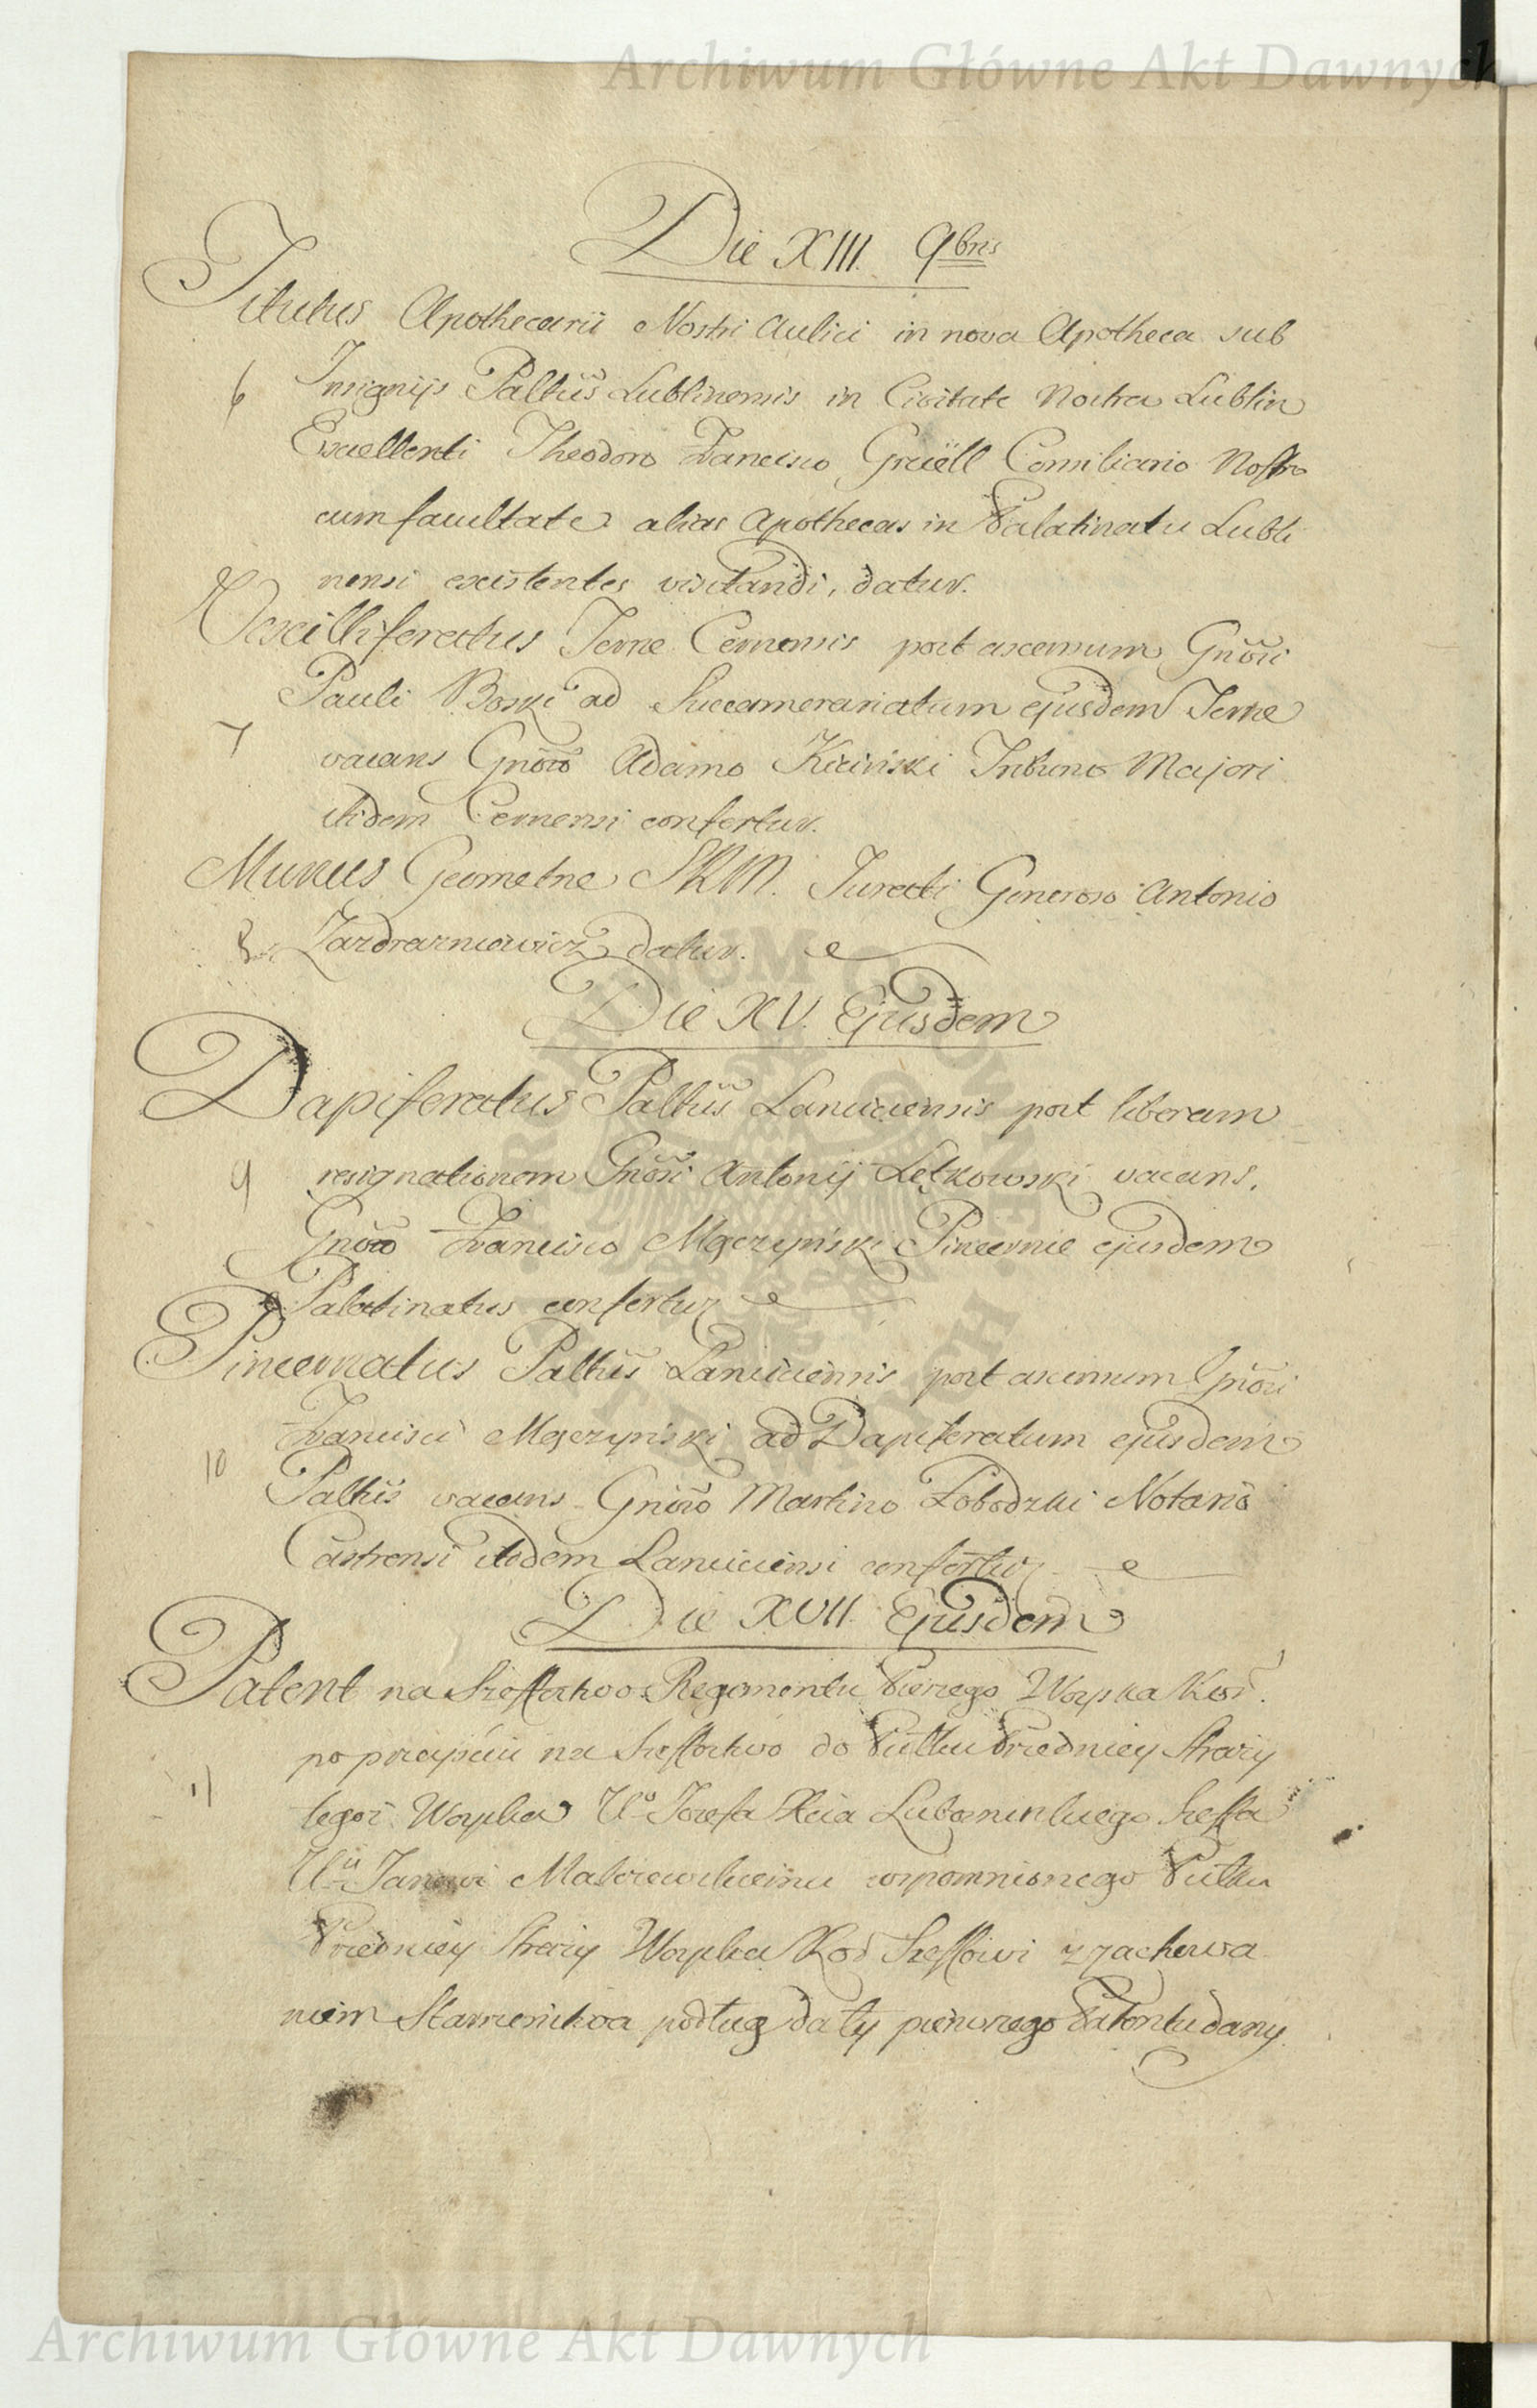 Archiwum Główne Akt Dawnych
Die XIII. 9bris
Titulus Apothecarii Nostri Aulici in nova Apotheca sub
6 Insignijs Paltŭs Lublinensis in Civitate Nostra Lublin
Excellenti Theodoro Francisco Gruëll Consiliario Nostro
cum facultate alias Apothecas in Palatinatu Lubli
nensi existentes visitandi, datur.
Vexilliferatus Terræ Cernensis post ascensum Gnõsi
Pauli Boski ad Succamerariatum ejusdem Terræ
7 vacans Gnõso Adamo Kiciński Tribuno Majori
itidem Cernensi confertur.
Munus Geometræ SRM. Jurati Generoso Antonio
8 Zazdrarniewicz datur.
Die XV. Ejusdem
Dapiferatus Paltŭs Lanciciensis post liberam
9 resignationem Gnõsi Antonij Łętkowski vacans,
Gnõso Francisco Mączyński Pincernæ ejusdem
Palatinatus confertur
Pincernatus Paltŭs Lanciciensis post ascensum Gnõsi
Francisci Mączyński ad Dapiferatum ejusdem
10 Paltŭs vacans Gnõso Martino Zobodzki Notario
Castrensi itidem Lanciciensi confertur
Die XVII. Ejusdem
Patent na Szeffostwo Regimentu Pieszego Woyska Kor.
po przeyściu na Szeffostwo do Pułku Przedniey Straży
11 tegoż Woyska Uo Jozefa Xcia Lubomirskiego Szeffa
Uu Janowi Malczewskiemu wspomnionego Pułku
Przedniey Straży Woyska Kor Szeffowi z zachowa
niem Starszeństwa podług daty pierwszego Patentu dany.
Archiwum Główne Akt Dawnych